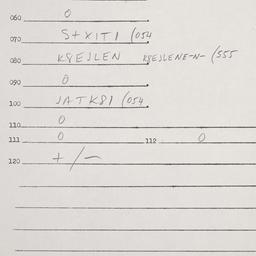 060 0
070 S+XITI (054
080 KREJLEN KREJLENE-N- (555
090 0
100 JATK81 (054
110 0
111 0 112 0
120 +/-